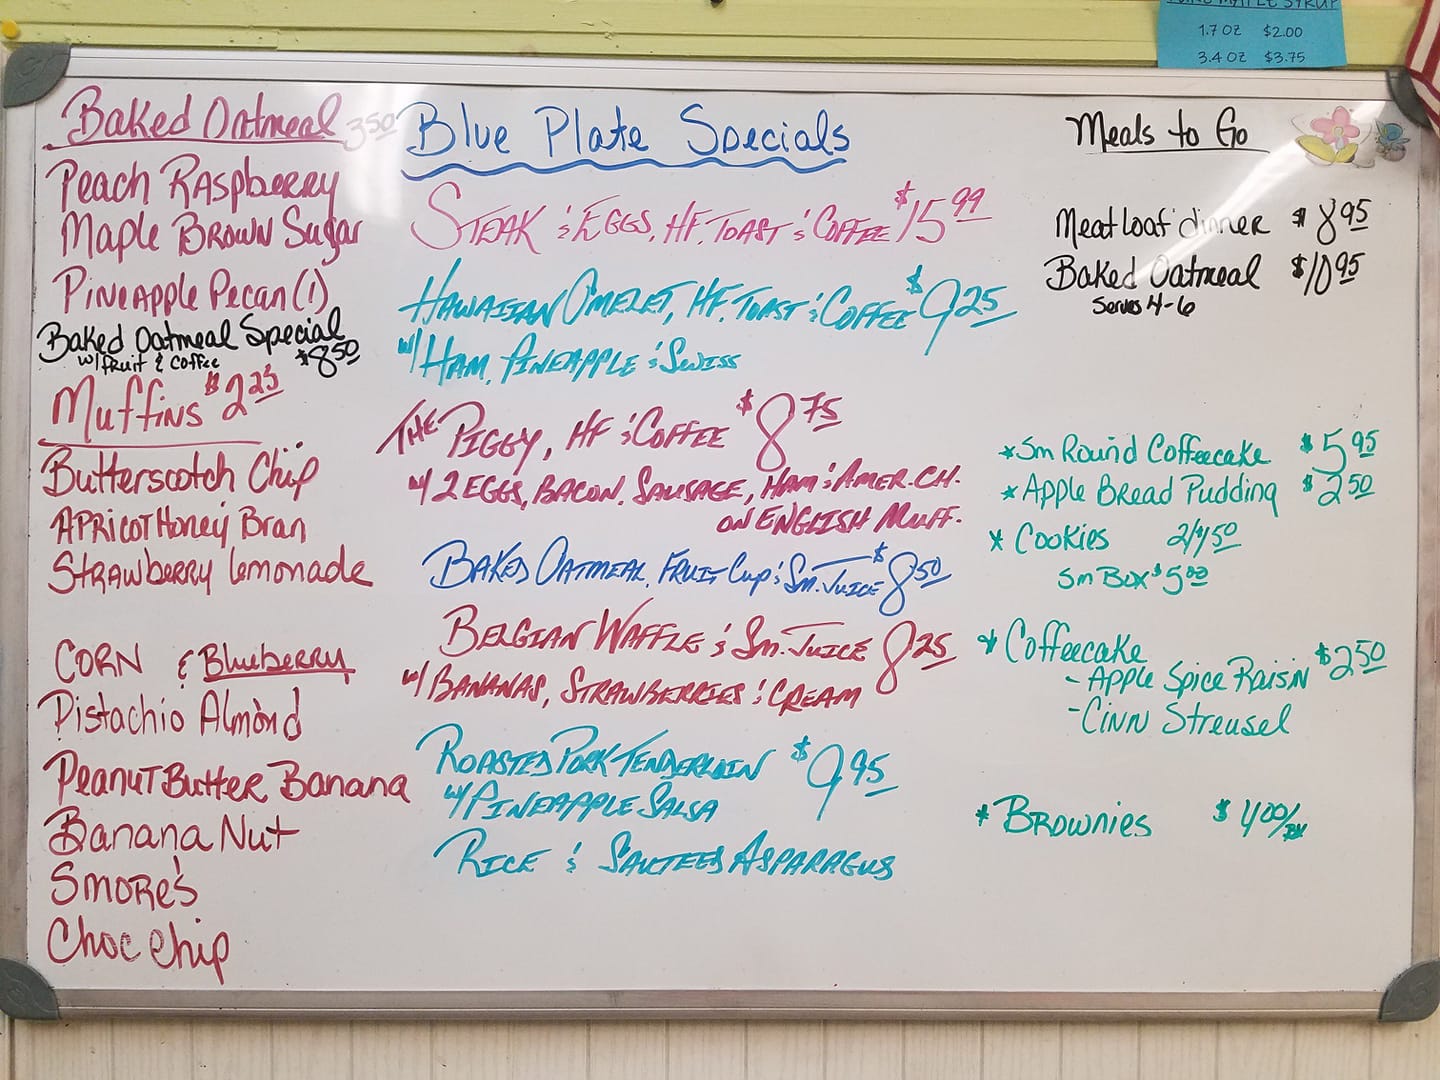 PURE MAPLE SYRUP
1.7 OZ $2.00
3.4 OZ $3.75
Baked Oatmeal 350
Peach Raspberry
Maple Brown Sugar
Pineapple Pecan (1)
Baked Oatmeal Special
w/ fruit & Coffee $8.50
Muffins $2.25
Butterscotch Chip
Apricot Honey Bran
Strawberry Lemonade
Corn & Blueberry
Pistachio Almond
Peanut Butter Banana
Banana Nut
Smore's
Choc Chip
Blue Plate Specials
STEAK & EGGS, HF, TOAST & COFFEE $15.99
HAWAIIAN OMELET, HF, TOAST & COFFEE $9.25
w/ HAM, PINEAPPLE & SWISS
THE PIGGY, HF & COFFEE $8.75
w/ 2 EGGS, BACON, SAUSAGE, HAM & AMER. CH.
ON ENGLISH MUFF.
BAKED OATMEAL, FRUIT CUP & SM. JUICE $8.50
BELGIAN WAFFLE & SM. JUICE 8.25
w/ BANANAS, STRAWBERRIES & CREAM
ROASTED PORK TENDERLOIN $9.95
w/ PINEAPPLE SALSA
RICE & SAUTEED ASPARAGUS
Meals to Go
Meatloaf dinner $8.95
Baked Oatmeal $10.95
Serves 4-6
* Sm Round Coffeecake $5.95
* Apple Bread Pudding $2.50
* Cookies 2/$1.50
Sm Box $5.00
* Coffeecake $2.50
- Apple Spice Raisin
- Cinn Streusel
* Brownies $4.00/